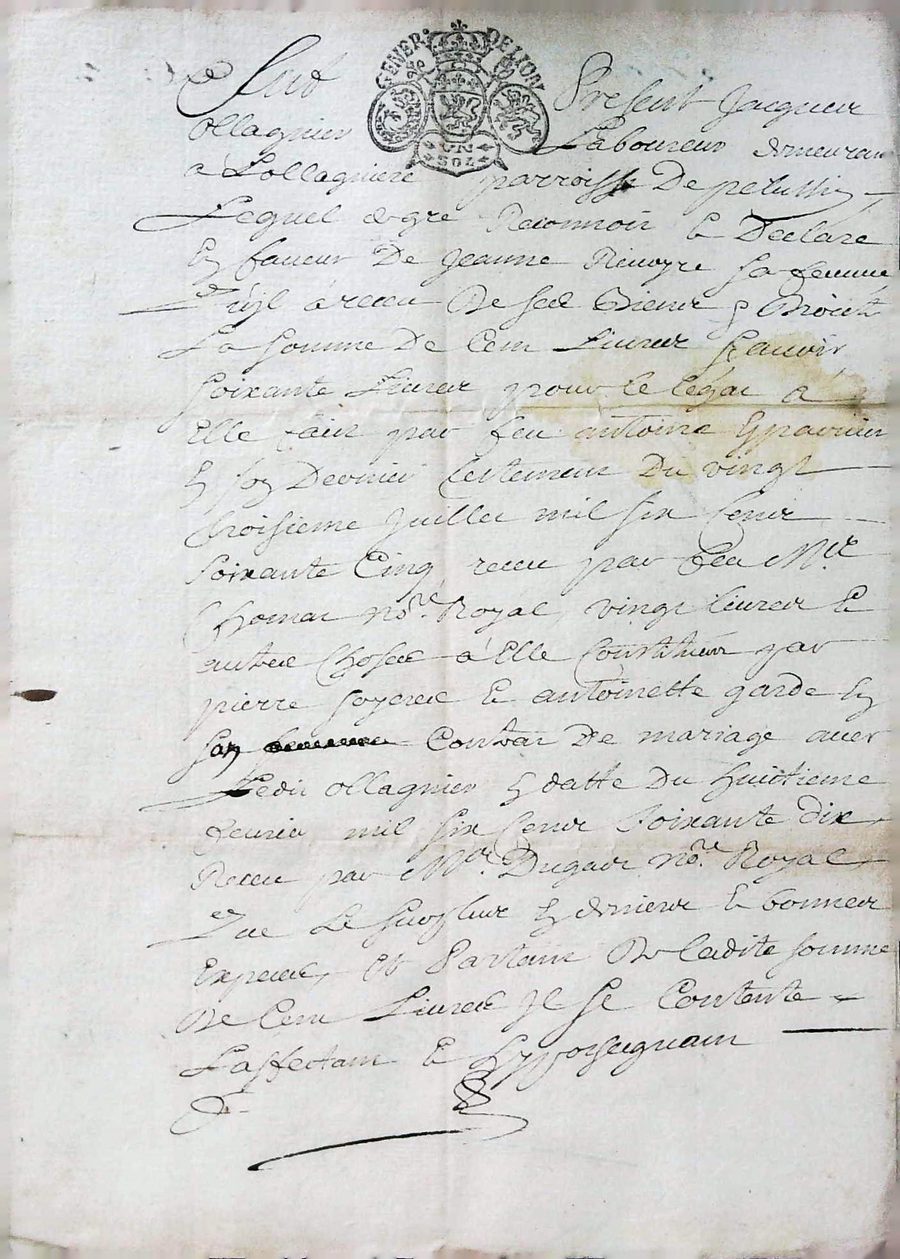 GENER. DE LION
2 SOLS
Fut Present Jacques
ollagnier Laboureur demeurant
a Lollagniere parroisse De pelussin
Lequel de gre Reconnoit & Declare
En faveur De Jeanne Rivoyre sa femme
Qu'il a receu De ses Deniers & Droicts
La somme De Cent Livres scavoir
soixante Livres pour le legat a
Elle fait par feu antoine
En son Dernier testement Du vingt
troisieme Juillet mil six Cents
soixante Cinq receu par feu Mre
Thomas nore Royal, vingt livres &
autres Choses a Elle Constitues par
pierre & antoinette garde En
son Contrat De mariage avec
Ledit ollagnier En datte Du huictieme
fevrier mil six Cents soixante dix
Receu par Mre Dugas nore Royal
Que Le surplus En deniers & bonnes
Especes, Et Partant De ladite somme
De Cent Livres Il se Contente
L'affectant & Hypothequant
&